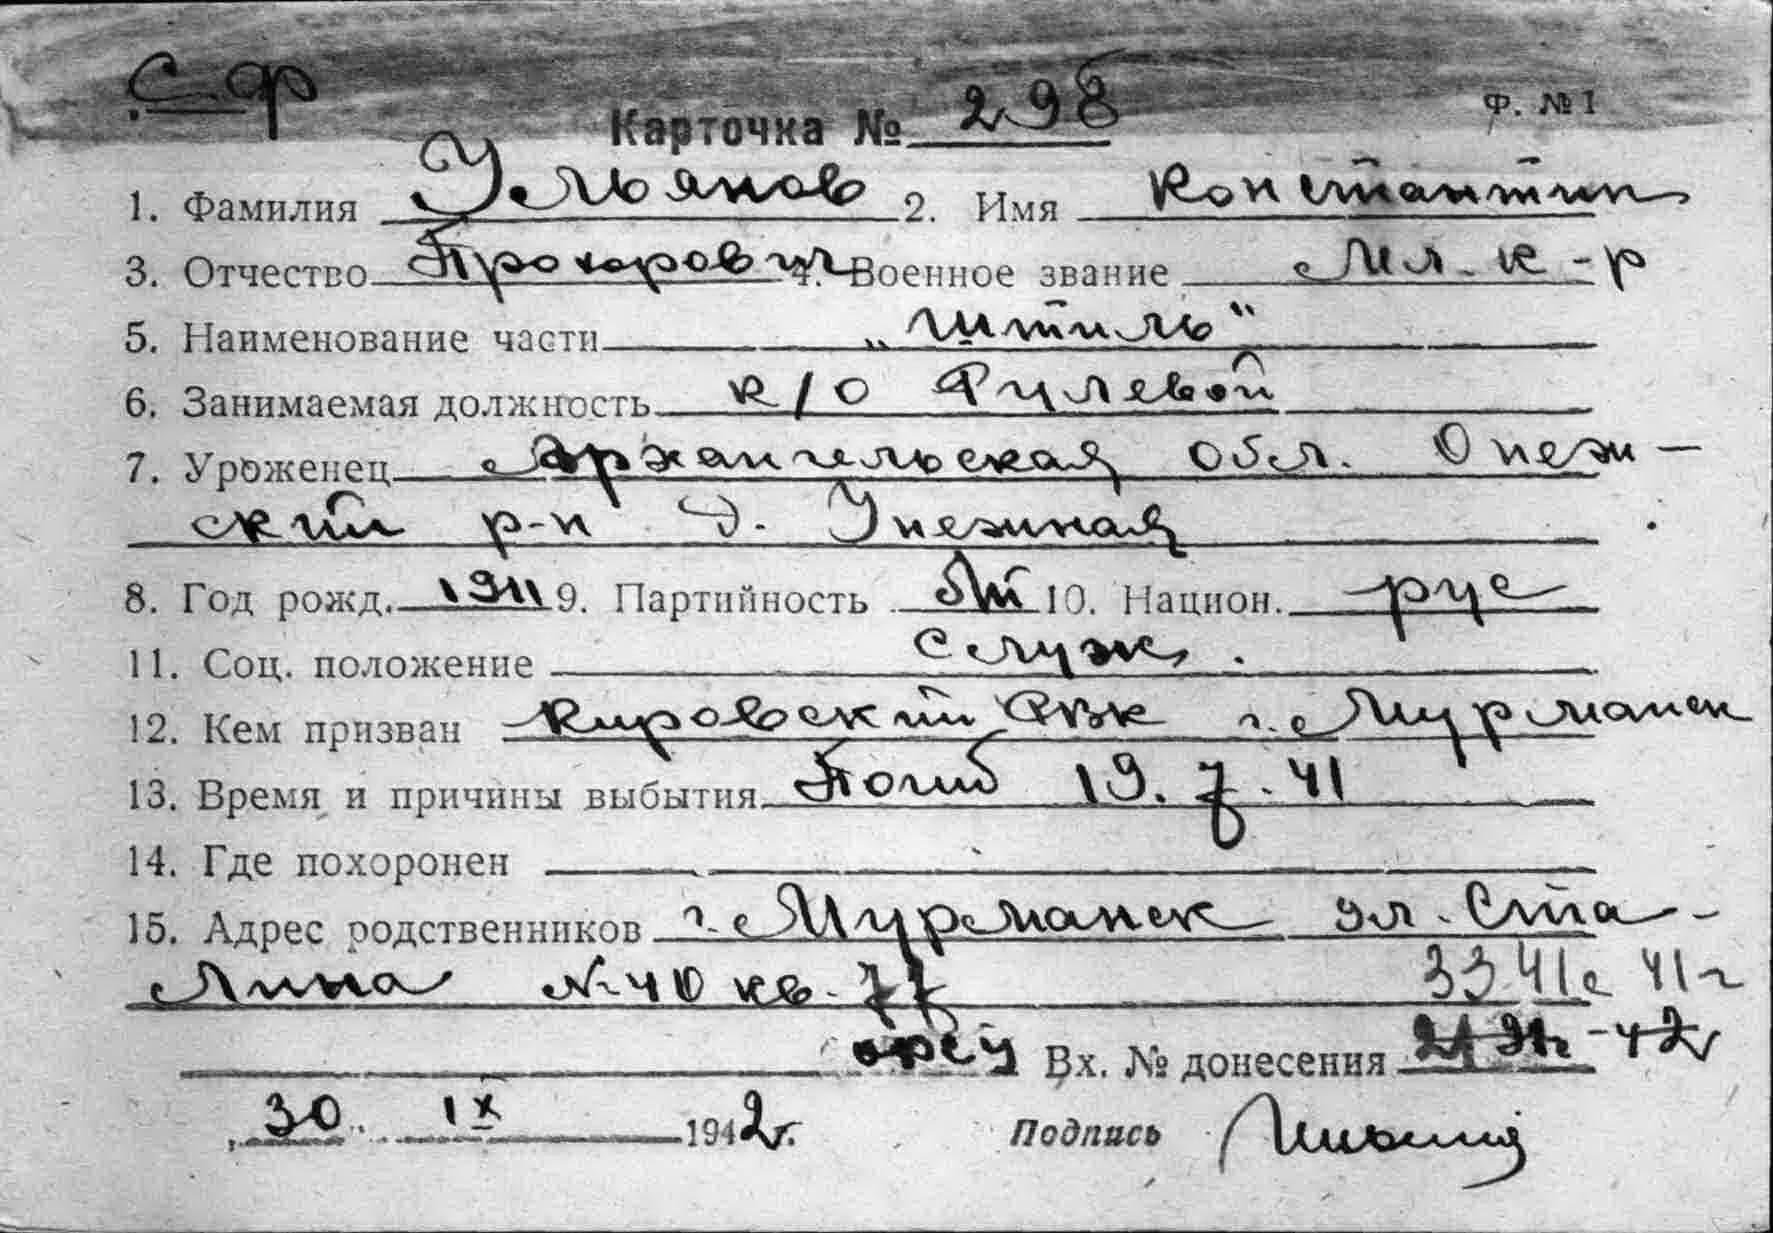 С.Ф
Карточка № 298 Ф. №1
1. Фамилия Ульянов 2. Имя Константин
3. Отчество Прохорович 4. Военное звание Мл. к-р
5. Наименование части „Штиль“
6. Занимаемая должность к/о Рулевой
7. Уроженец Архангельская обл. Онеж-
ский р-н д. Унежная
8. Год рожд. 1911 9. Партийность б/п 10. Национ. рус
11. Соц. положение служ.
12. Кем призван Кировский РВК г. Мурманск
13. Время и причины выбытия Погиб 19.7.41
14. Где похоронен
15. Адрес родственников г. Мурманск ул. Ста-
лина №40 кв. 77 3341с 41г
Вх. № донесения
30 IX 1942г. Подпись